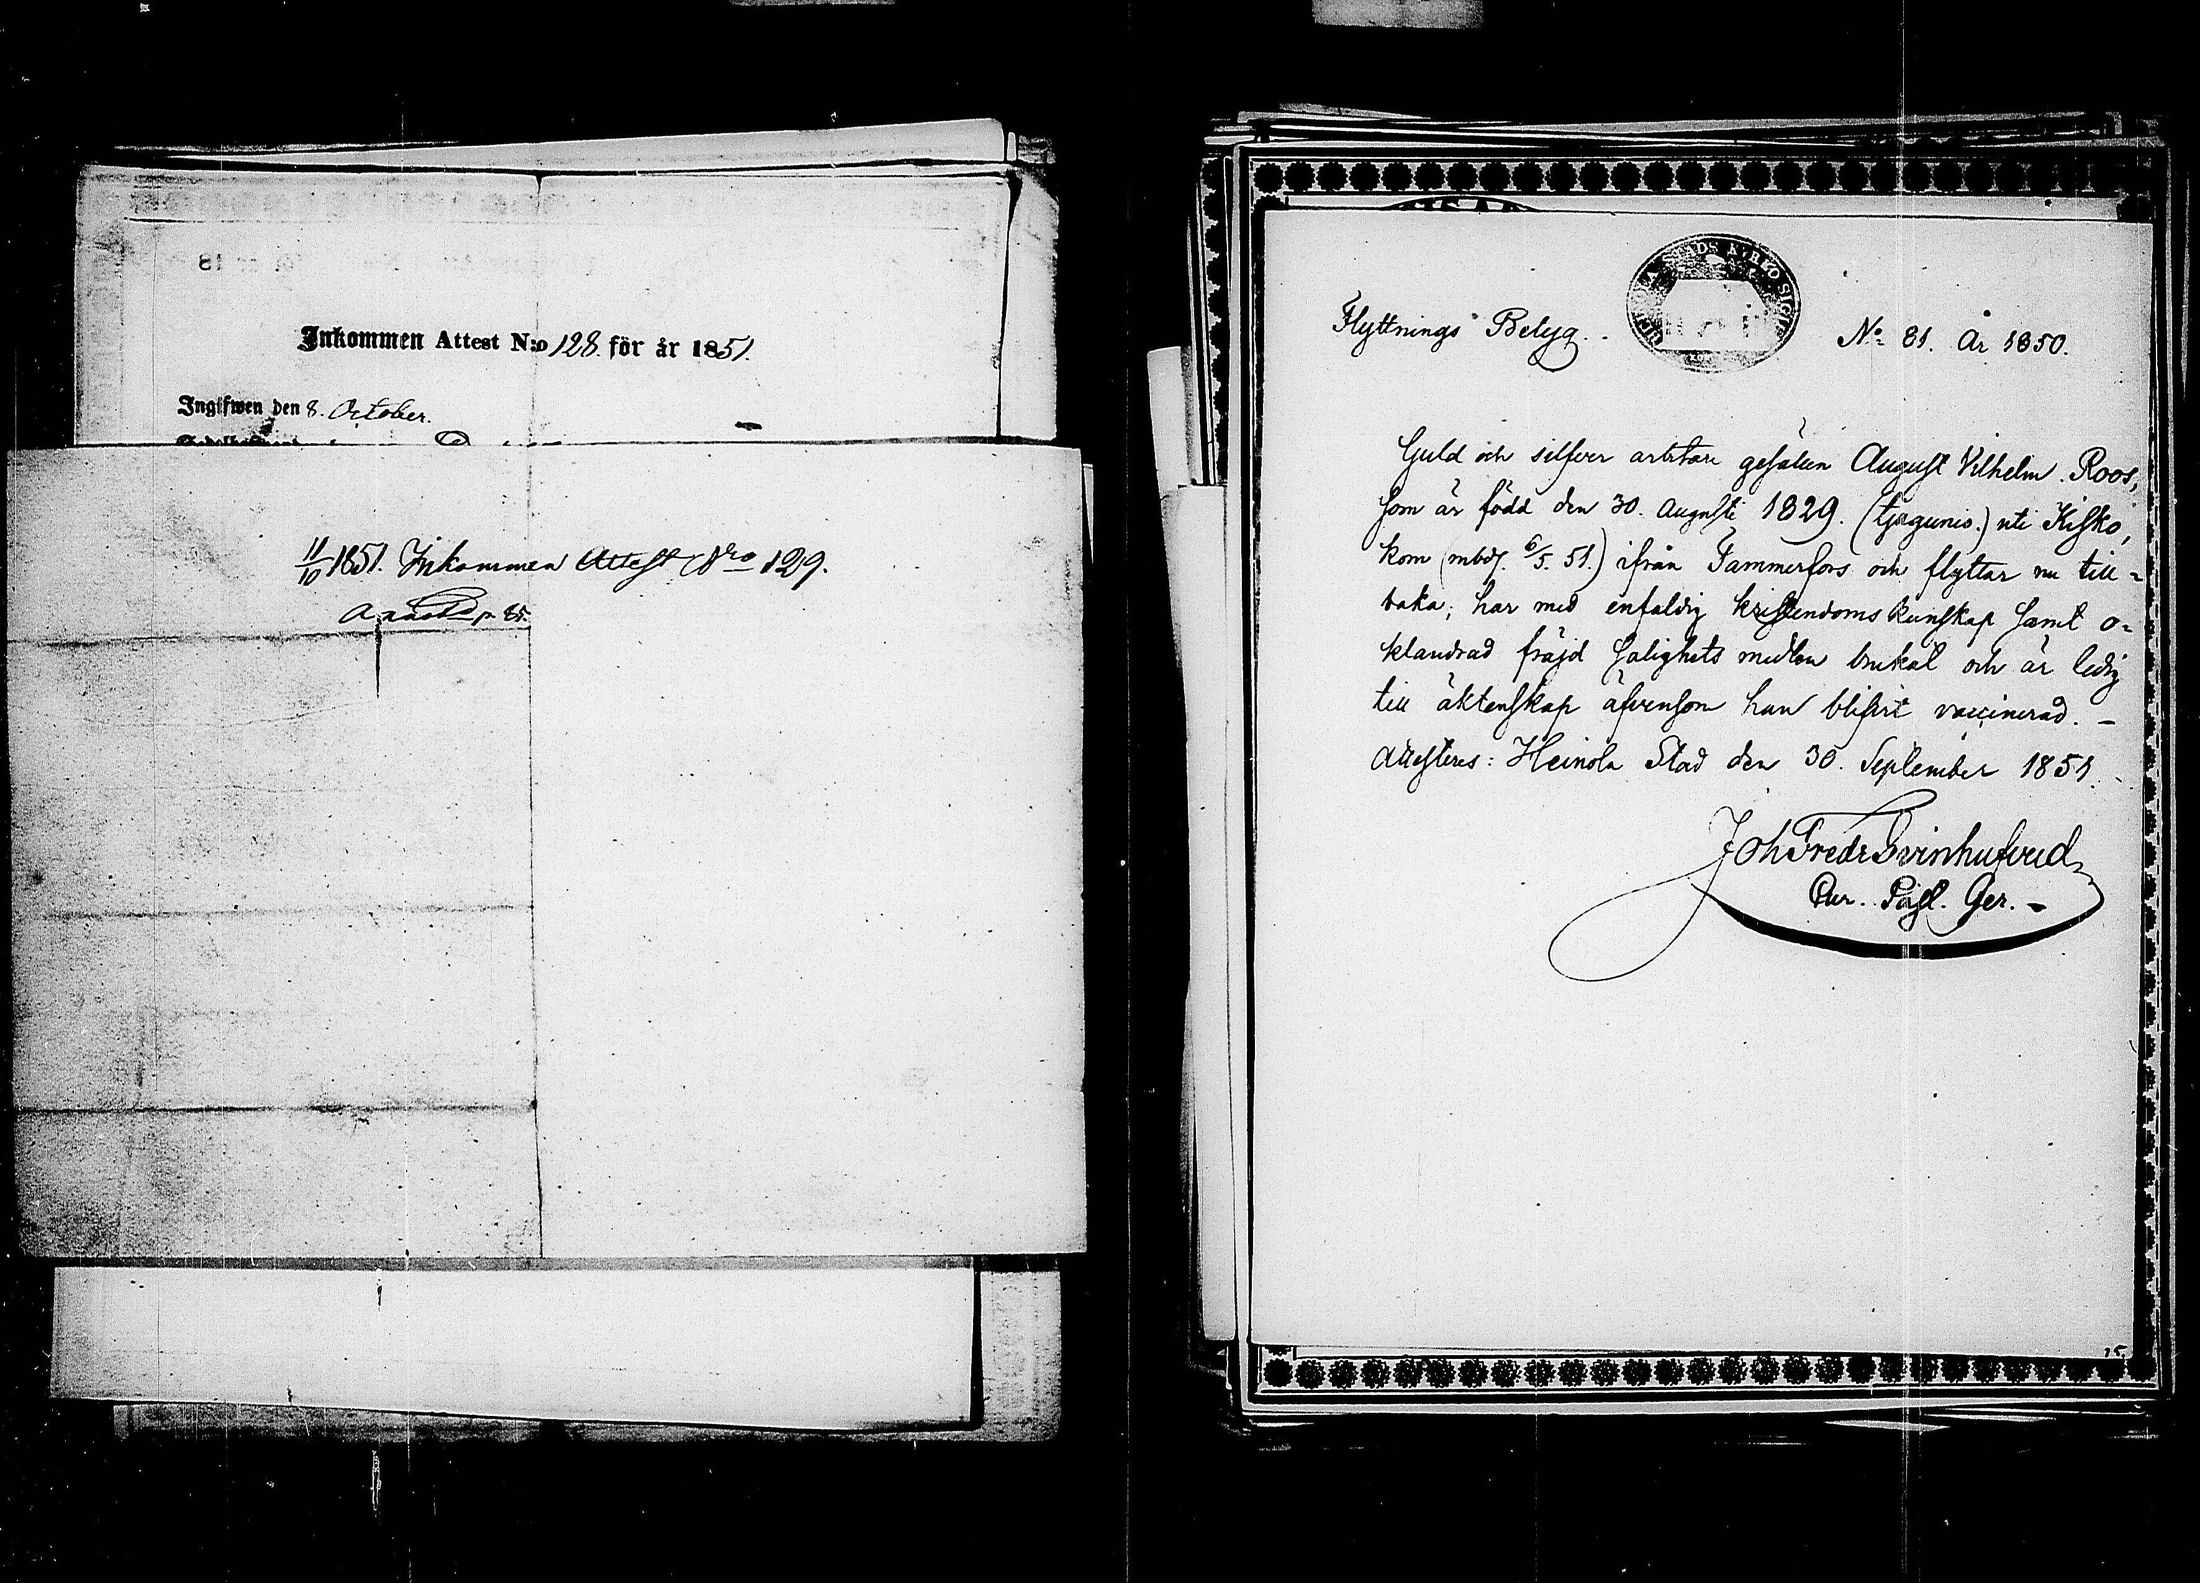 Inkommen Attest N:o 128. för år 1851.
Ingifwen den 8. October.
11/10 1851. Inkommen Attest Nro 129.
p. 85.
Flyttnings Betyg.
No 81. År 1850.
Guld och silfver arbetare gesällen August Vilhelm Roos,
som är född den 30. Augusti 1829. (tjugunio.) uti Kisko,
kom (mbd. 6/5. 51.) ifrån Tammerfors och flyttar nu till-
baka; har med enfaldig kristendoms kunskap samt o-
klandrad fräjd salighets medlen brukat och är ledig
till äktenskap äfvensom han blifvit vaccinerad. –
Attesteres: Heinola Stad den 30. September 1851. –
Joh Fredr Svinhufvud
Past. Ger. –